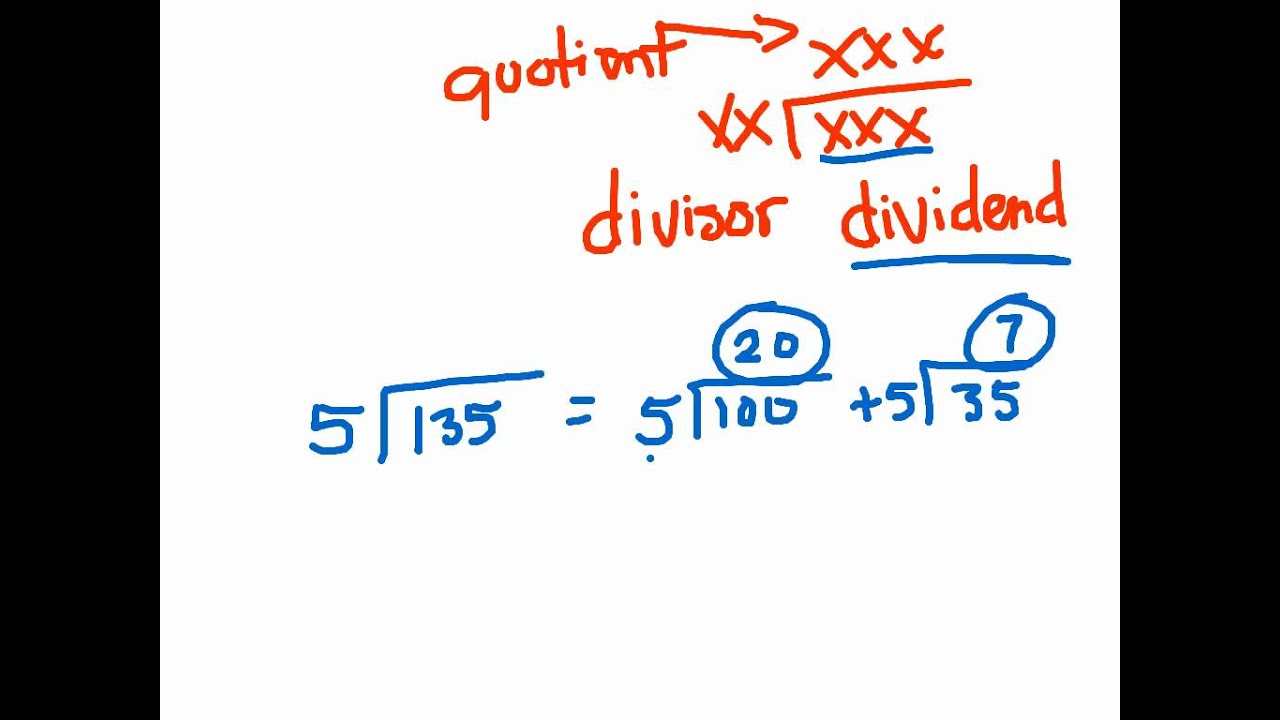 quotient → xxx
xx xxx
divisor dividend
20 7
5 135 = 5 100 + 5 35